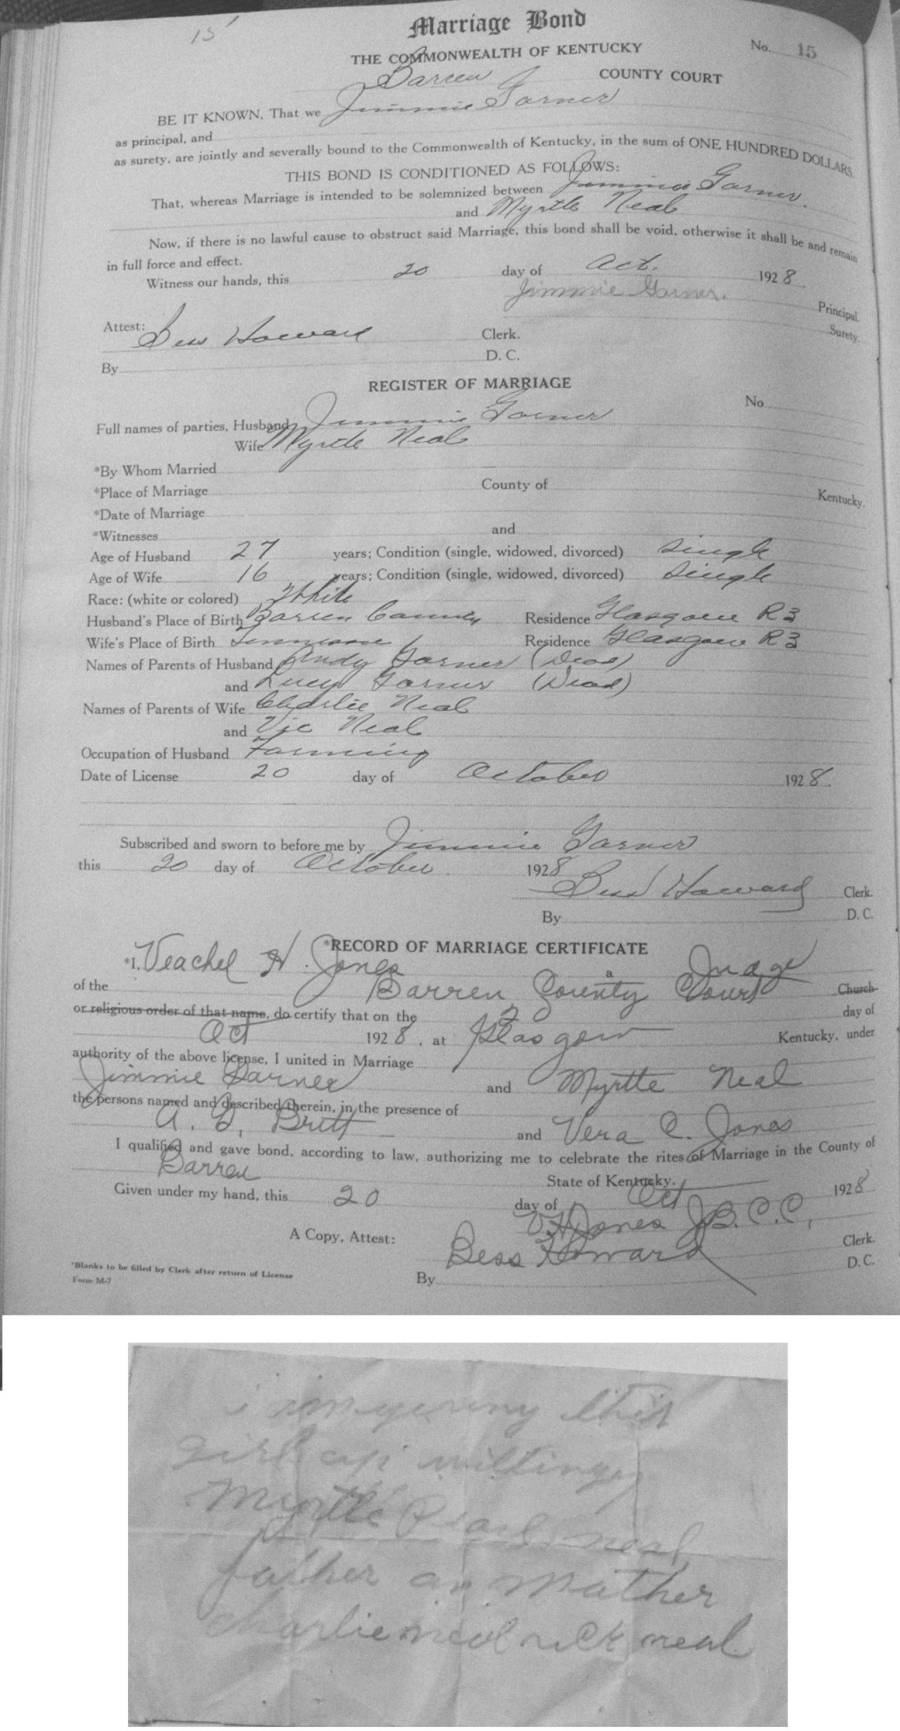 15
Marriage Bond
No. 15
THE COMMONWEALTH OF KENTUCKY
Barren COUNTY COURT
BE IT KNOWN, That we Jimmie Garner
as principal, and
as surety, are jointly and severally bound to the Commonwealth of Kentucky, in the sum of ONE HUNDRED DOLLARS.
THIS BOND IS CONDITIONED AS FOLLOWS:
That, whereas Marriage is intended to be solemnized between Jimmie Garner.
and Myrtle Neal
Now, if there is no lawful cause to obstruct said Marriage, this bond shall be void, otherwise it shall be and remain
in full force and effect.
Witness our hands, this 20 day of Oct. 1928
Jimmie Garner. Principal.
Surety.
Attest: Bess Howard Clerk.
By D. C.
REGISTER OF MARRIAGE
No
Full names of parties, Husband Jimmie Garner
Wife Myrtle Neal
*By Whom Married
*Place of Marriage County of Kentucky.
*Date of Marriage
*Witnesses and
Age of Husband 27 years; Condition (single, widowed, divorced) Single
Age of Wife 16 years; Condition (single, widowed, divorced) Single
Race: (white or colored) White
Husband's Place of Birth Barren County Residence Glasgow R3
Wife's Place of Birth Tennessee Residence Glasgow R3
Names of Parents of Husband Andy Garner (Dead)
and Lucy Garner (Dead)
Names of Parents of Wife Charlie Neal
and Vic Neal
Occupation of Husband Farming
Date of License 20 day of October 1928.
Subscribed and sworn to before me by Jimmie Garner
this 20 day of October. 1928
Bess Howard Clerk.
By D. C.
*RECORD OF MARRIAGE CERTIFICATE
*I, Veachel H. Jones a Judge
of the Barren County Court Church
or religious order of that name, do certify that on the 20 day of
Oct 1928, at Glasgow Kentucky, under
authority of the above license, I united in Marriage
Jimmie Garner and Myrtle Neal
the persons named and described therein, in the presence of
A. G. Britt and Vera C. Jones
I qualified and gave bond, according to law, authorizing me to celebrate the rites of Marriage in the County of
Barren State of Kentucky.
Given under my hand, this 20 day of Oct 1928
V H Jones J.B.C.C.
A Copy, Attest: Bess Howard Clerk.
By D. C.
*Blanks to be filled by Clerk after return of License
Form M-7
i im gening this
girl up willingy
Myrtle Pearl neal
father an mother
charlie neal vick neal